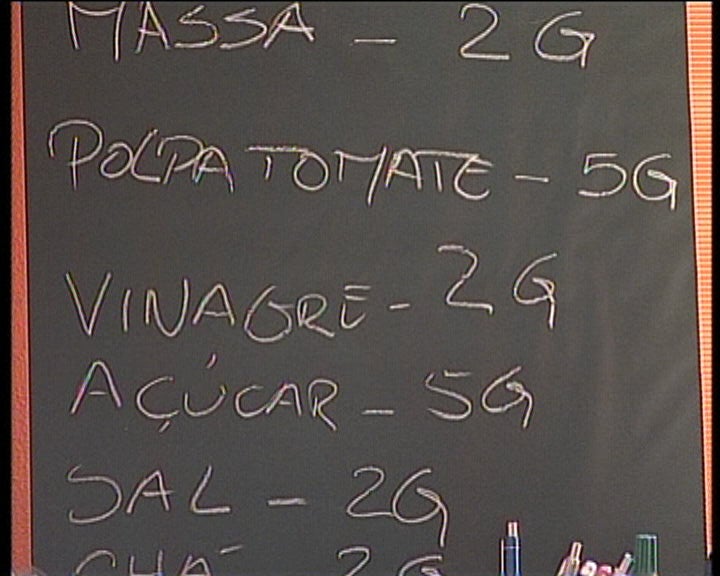 MASSA - 2 G
POLPA TOMATE - 5G
VINAGRE - 2 G
AÇÚCAR - 5G
SAL - 2G
CHÁ - 2G